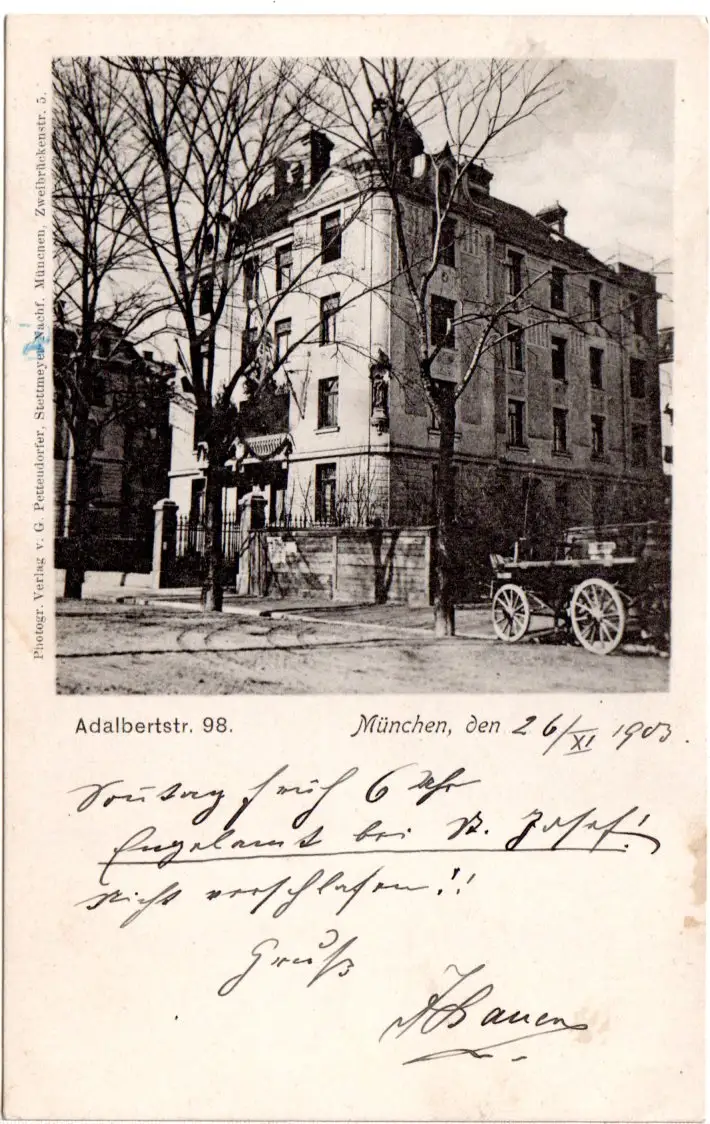 Photogr. Verlag v. G. Pettendorfer, Stettmeyer Nachf. München, Zweibrückenstr. 5.
Adalbertstr. 98.
München, den 26/XI 1903.
Sonntag früh 6 Uhr
Engelamt bei St. Josef!
Nicht verschlafen!!
Gruß